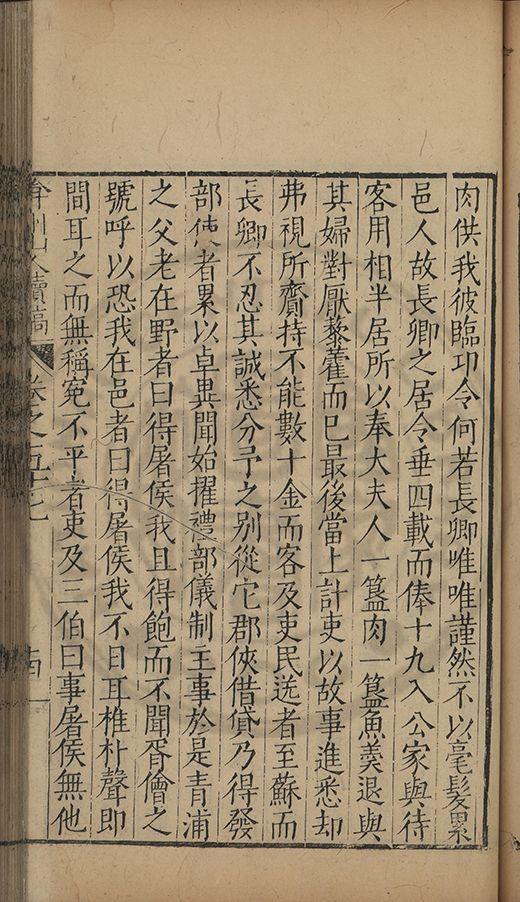 肉供我彼臨邛令何若長卿唯唯謹然不以毫髮累
邑人故長卿之居令垂四載而俸十九入公家與待
客用相半居所以奉大夫人一簋肉一簋魚羹退與
其婦對厭藜藿而已最後當上計吏以故事進悉却
弗視所齎持不能數十金而客及吏民送者至蘇而
長卿不忍其誠悉分予之別從它郡俠借貸乃得發
部使者累以卓異聞始擢禮部儀制主事於是青浦
之父老在野者曰得屠侯我且得飽而不聞胥儈之
號呼以恐我在邑者曰得屠侯我不日耳椎朴聲即
間耳之而無稱冤不平者吏及三伯曰事屠侯無他
弇州山人續稿 卷之五十七